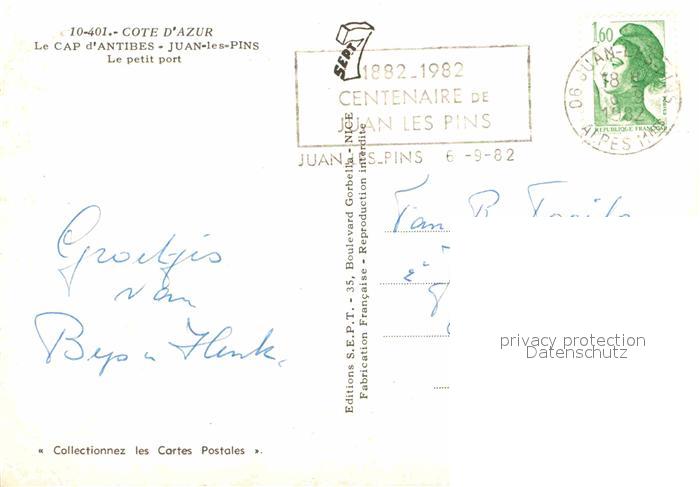 10-401.- COTE D'AZUR
Le CAP d'ANTIBES - JUAN-les-PINS
Le petit port
SEPT
1882-1982
CENTENAIRE DE
JUAN LES PINS
JUAN-LES-PINS 6 -9-82
1,60
REPUBLIQUE FRANÇAISE
06 JUAN-LES-PINS
18 H
1982
ALPES Mmes
Groetjes
van
Bep en Henk.
Fam
Editions S.E.P.T. - 35, Boulevard Gorbella - NICE
Fabrication Française - Reproduction interdite
privacy protection
Datenschutz
« Collectionnez les Cartes Postales ».